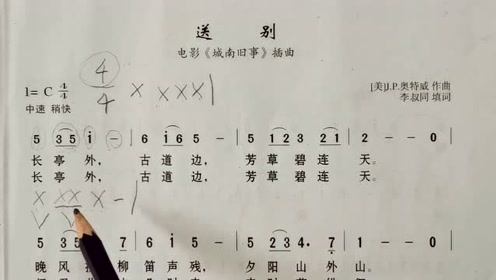 送 别
电影《城南旧事》插曲
1= C 4/4 4/4 X XXX|
中速 稍快
[美]J.P.奥特威 作曲
李叔同 填词
5 3 5 i - | 6 i 6 5 - | 5 1 2 3 2 1 | 2 - - - |
长 亭 外， 古 道 边， 芳 草 碧 连 天。
长 亭 外， 古 道 边， 芳 草 碧 连 天。
X XX X - |
V V
5 3 5 7 | 6 i 5 - | 5 2 3 4. 7 | 1 - - - |
晚 风 拂 柳 笛 声 残， 夕 阳 山 外 山。